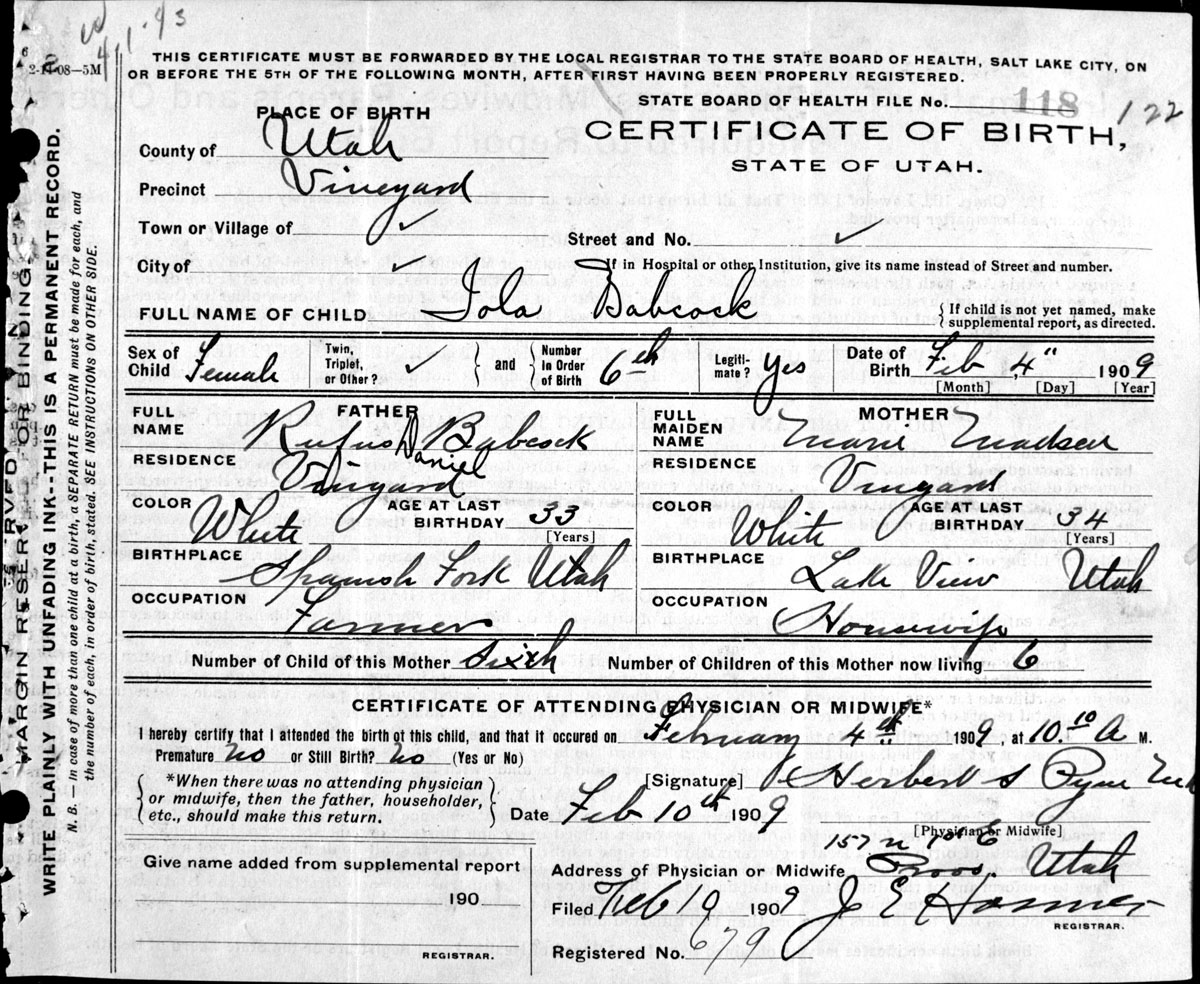 W
4-1-43
2-11-08—5M
THIS CERTIFICATE MUST BE FORWARDED BY THE LOCAL REGISTRAR TO THE STATE BOARD OF HEALTH, SALT LAKE CITY, ON
OR BEFORE THE 5TH OF THE FOLLOWING MONTH, AFTER FIRST HAVING BEEN PROPERLY REGISTERED.
STATE BOARD OF HEALTH FILE No. 118 122
PLACE OF BIRTH
CERTIFICATE OF BIRTH,
STATE OF UTAH.
County of Utah
Precinct Vineyard
Town or Village of ✓
Street and No. ✓
City of ✓
If in Hospital or other Institution, give its name instead of Street and number.
FULL NAME OF CHILD Iola Babcock
{ If child is not yet named, make
supplemental report, as directed.
Sex of Child Female Twin, Triplet, or Other? ✓ } and { Number in Order of Birth 6th Legiti-mate? yes Date of Birth Feb 4" 1909
[Month] [Day] [Year]
FATHER
FULL NAME Rufus D Babcock
Daniel
RESIDENCE Vinyard
COLOR White AGE AT LAST BIRTHDAY 33
[Years]
BIRTHPLACE Spanish Fork Utah
OCCUPATION Farmer
MOTHER
FULL MAIDEN NAME Marie Madsen
RESIDENCE Vinyard
COLOR White AGE AT LAST BIRTHDAY 34
[Years]
BIRTHPLACE Lake View Utah
OCCUPATION Housewife
Number of Child of this Mother Sixth Number of Children of this Mother now living 6
CERTIFICATE OF ATTENDING PHYSICIAN OR MIDWIFE*
I hereby certify that I attended the birth of this child, and that it occured on February 4th 1909, at 10.10 A M.
Premature No or Still Birth? No (Yes or No)
{ *When there was no attending physician
or midwife, then the father, householder,
etc., should make this return. }
[Signature] Herbert S Pyne
Date Feb 10th 1909
[Physician or Midwife]
157 n 1st E
Address of Physician or Midwife Provo, Utah
Give name added from supplemental report
190
REGISTRAR.
Filed Feb 19 1909 J E
REGISTRAR.
Registered No. 679
MARGIN RESERVED FOR BINDING
WRITE PLAINLY WITH UNFADING INK--THIS IS A PERMANENT RECORD.
N. B. — In case of more than one child at a birth, a SEPARATE RETURN must be made for each, and
the number of each, in order of birth, stated. SEE INSTRUCTIONS ON OTHER SIDE.